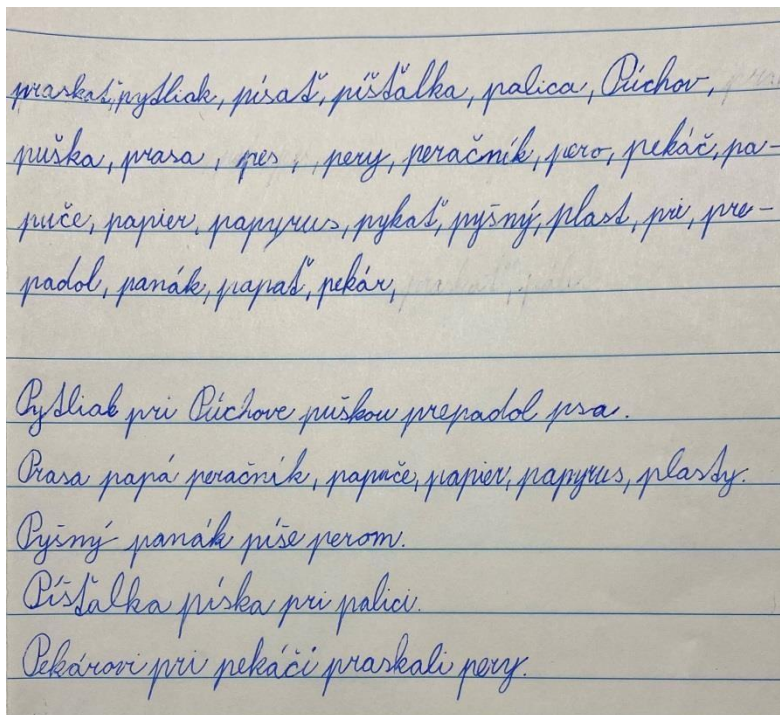 praskať, pytliak, písať, píšťalka, palica, Púchov,
puška, prasa, pes, pery, peračník, pero, pekáč, pa-
puče, papier, papyrus, pykať, pyšný, plast, pri, pre-
padol, panák, papať, pekár,
Pytliak pri Púchove puškou prepadol psa.
Prasa papá peračník, papuče, papier, papyrus, plasty.
Pyšný panák píše perom.
Píšťalka píska pri palici.
Pekárovi pri pekáči praskali pery.